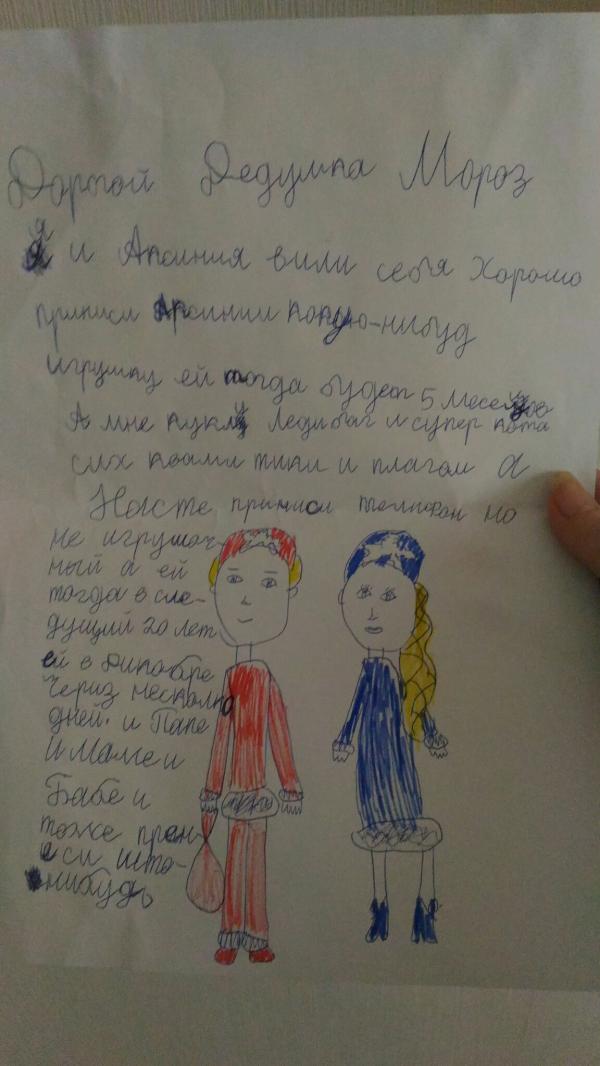 Дорогой Дедушка Мороз
я и Апсиния вили себя Хорошо
приниси Арсинии какую-нибуд
игрушку ей тогда будет 5 месецов
А мне куклу Ледибаг и супер кота
сих квами тики и плагом а
Насте приниси телифон но
не игрушач-
ный а ей
тогда в сле-
дущий 20 лет
ей в Дикабре
через несколко
дней. и Папе
и Маме и
Бабе и
тоже прен-
еси што-
нибудь